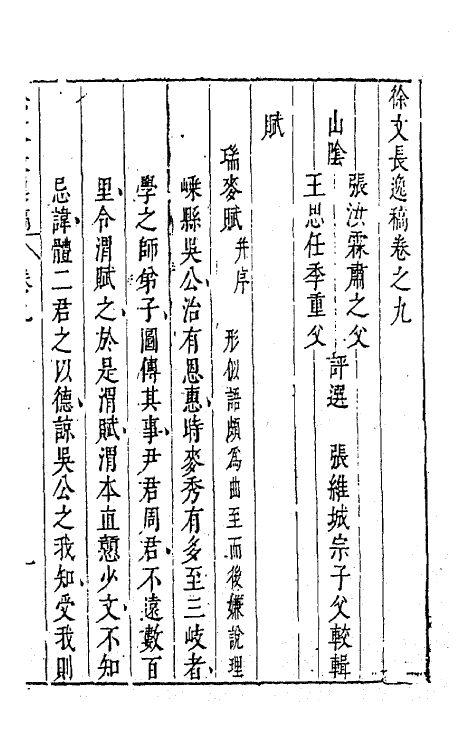 徐文長逸稿卷之九
山陰
張汝霖肅之父
王思任季重父
評選　張維城宗子父較輯
賦
瑞麥賦并序　形似語頗為曲至而後嫌說理
嵊縣吳公治有恩惠時麥秀有多至三岐者
學之師弟子圖傳其事尹君周君不遠數百
里令渭賦之於是渭賦渭本直戇少文不知
忌諱體二君之以德諒吳公之我知受我則
卷九
一